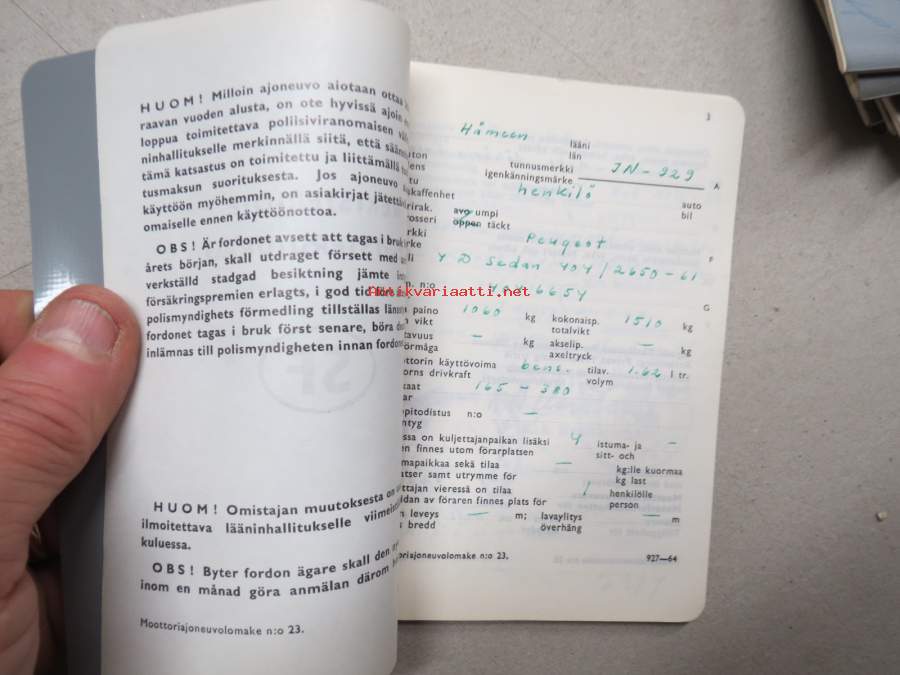 HUOM! Milloin ajoneuvo aiotaan ottaa
raavan vuoden alusta, on ote hyvissä ajoin
loppua toimitettava poliisiviranomaisen
ninhallitukselle merkinnällä siitä, että
tämä katsastus on toimitettu ja liittämällä
tusmaksun suorituksesta. Jos ajoneuvo
käyttöön myöhemmin, on asiakirjat
omaiselle ennen käyttöönottoa.
OBS! Är fordonet avsett att tagas i bruk
årets början, skall utdraget försett med
verkställd stadgad besiktning jämte
försäkringspremien erlagts, i god tid
polismyndighets förmedling tillställas
fordonet tagas i bruk först senare, böra
inlämnas till polismyndigheten innan
HUOM! Omistajan muutoksesta on
ilmoitettava lääninhallitukselle
kuluessa.
OBS! Byter fordon ägare skall den
inom en månad göra anmälan därom
Moottoriajoneuvolomake n:o 23.
3
Hämeen lääni
län
tunnusmerkki JN-929 A
igenkänningsmärke
henkilö auto
skaffenhet bil
rirak. avo umpi
rosseri öppen täckt
rkki Peugeot
rke F
4 D Sedan 404/2650-61
n:o 4046654 G
Antikvariaatti.net
paino 1060 kg kokonaisp. 1510 kg
vikt totalvikt
tavuus — kg akselip. — kg
förmåga axeltryck
ttorin käyttövoima bens. tilav. 1.62 l tr.
orns drivkraft volym
taat 165 - 380
ar
pitodistus n:o —
ntyg
ssa on kuljettajanpaikan lisäksi 4 istuma- ja —
en finnes utom förarplatsen sitt- och
mapaikkaa sekä tilaa — kg:lle kuormaa
atser samt utrymme för kg last
ttajan vieressä on tilaa 1 henkilölle
idan av föraren finnes plats för person
n leveys — m; lavaylitys — m
s bredd överhäng
toriajoneuvolomake n:o 23, 927—64